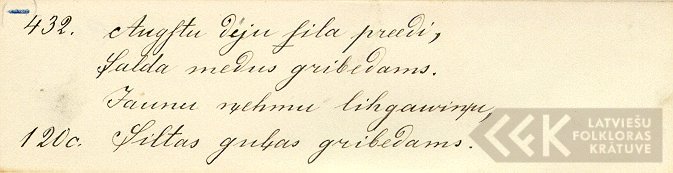 432. Augstu dęju sila preedi,
Salda medus gribedams.
Jaunu ņehmu lihgawiņu,
120c. Siltas guļas gribedams.
LATVIEŠU
FOLKLORAS
KRĀTUVE